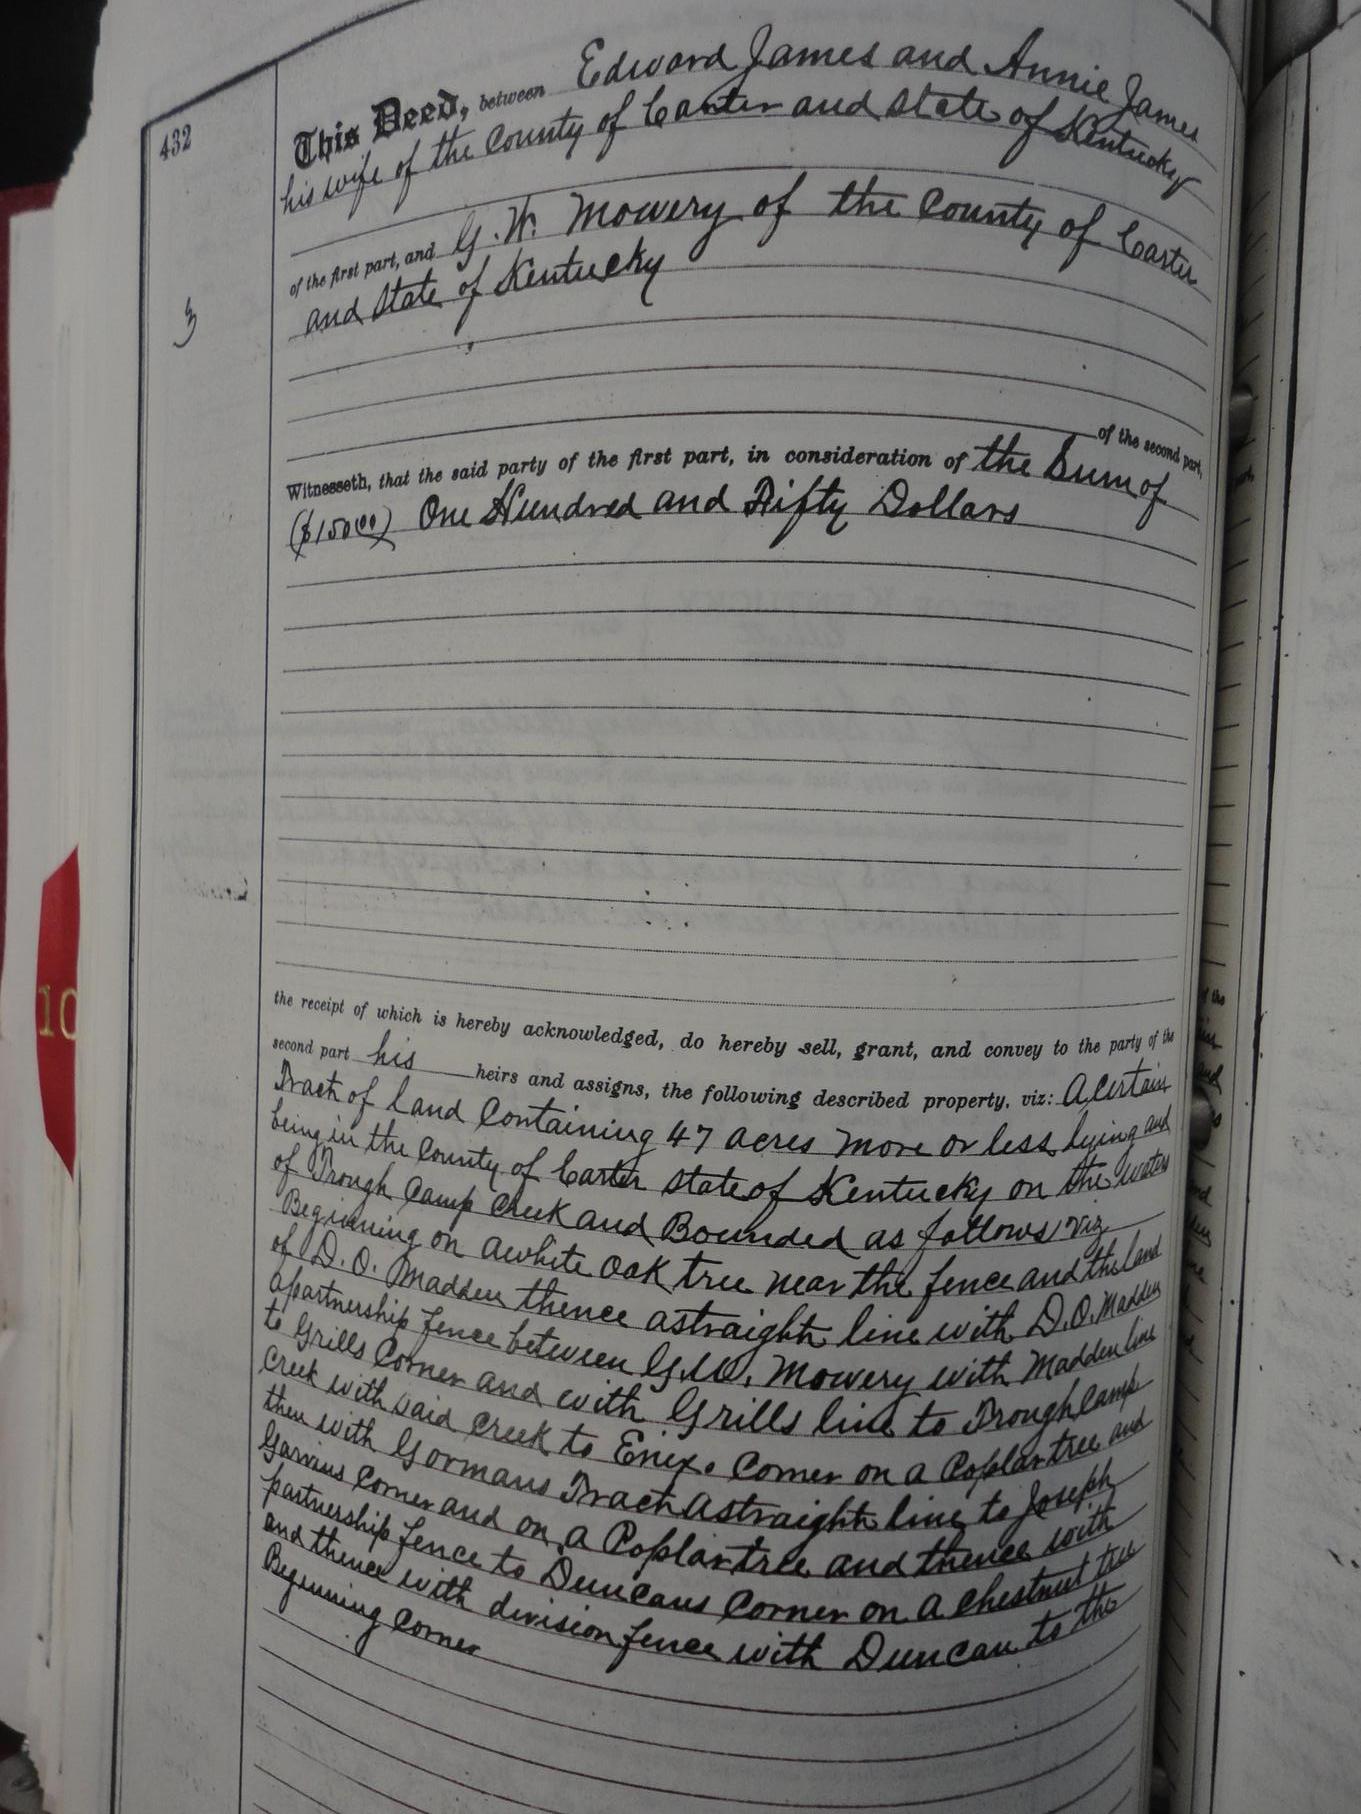 432
This Deed, between Edward James and Annie James
his wife of the County of Carter and State of Kentucky
of the first part, and G. W. Mowery of the County of Carter
and State of Kentucky
3
of the second part,
Witnesseth, that the said party of the first part, in consideration of the Sum of
($150.00) One Hundred and Fifty Dollars
the receipt of which is hereby acknowledged, do hereby sell, grant, and convey to the party of the
second part his heirs and assigns, the following described property, viz: A Certain
Tract of land Containing 47 acres more or less lying and
being in the County of Carter State of Kentucky on the waters
of Trough Camp Creek and Bounded as follows viz
Beginning on a white oak tree near the fence and the land
of D. O. Madden thence a straight line with D. O. Madden
a partnership fence between G. W. Mowery with Madden line
to Grills Corner and with Grills line to Trough Camp
Creek with said Creek to Enix. Corner on a Poplar tree and
then with Gormans Tract a straight line to Joseph
Corner and on a Poplar tree and thence with
partnership fence to Duncans Corner on a Chestnut tree
and thence with division fence with Duncan to the
Beginning Corner
10